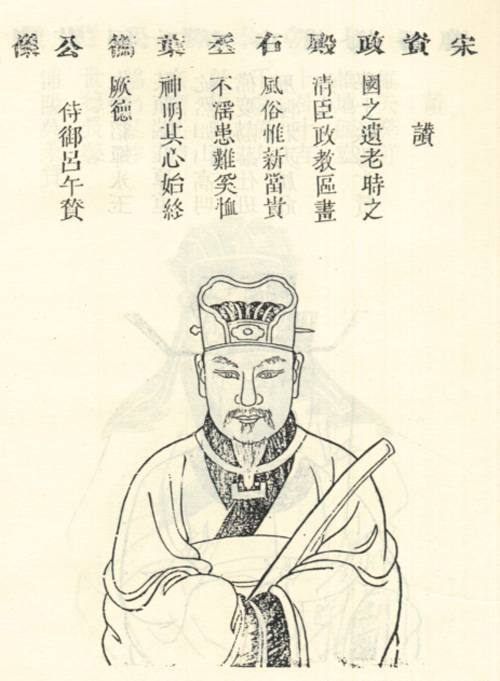 宋資政殿右丞葉公像
讃
國之遺老時之
清臣政教區畫
風俗惟新當貴
不滛患難奚恤
神明其心始終
厥德
侍御呂午賛